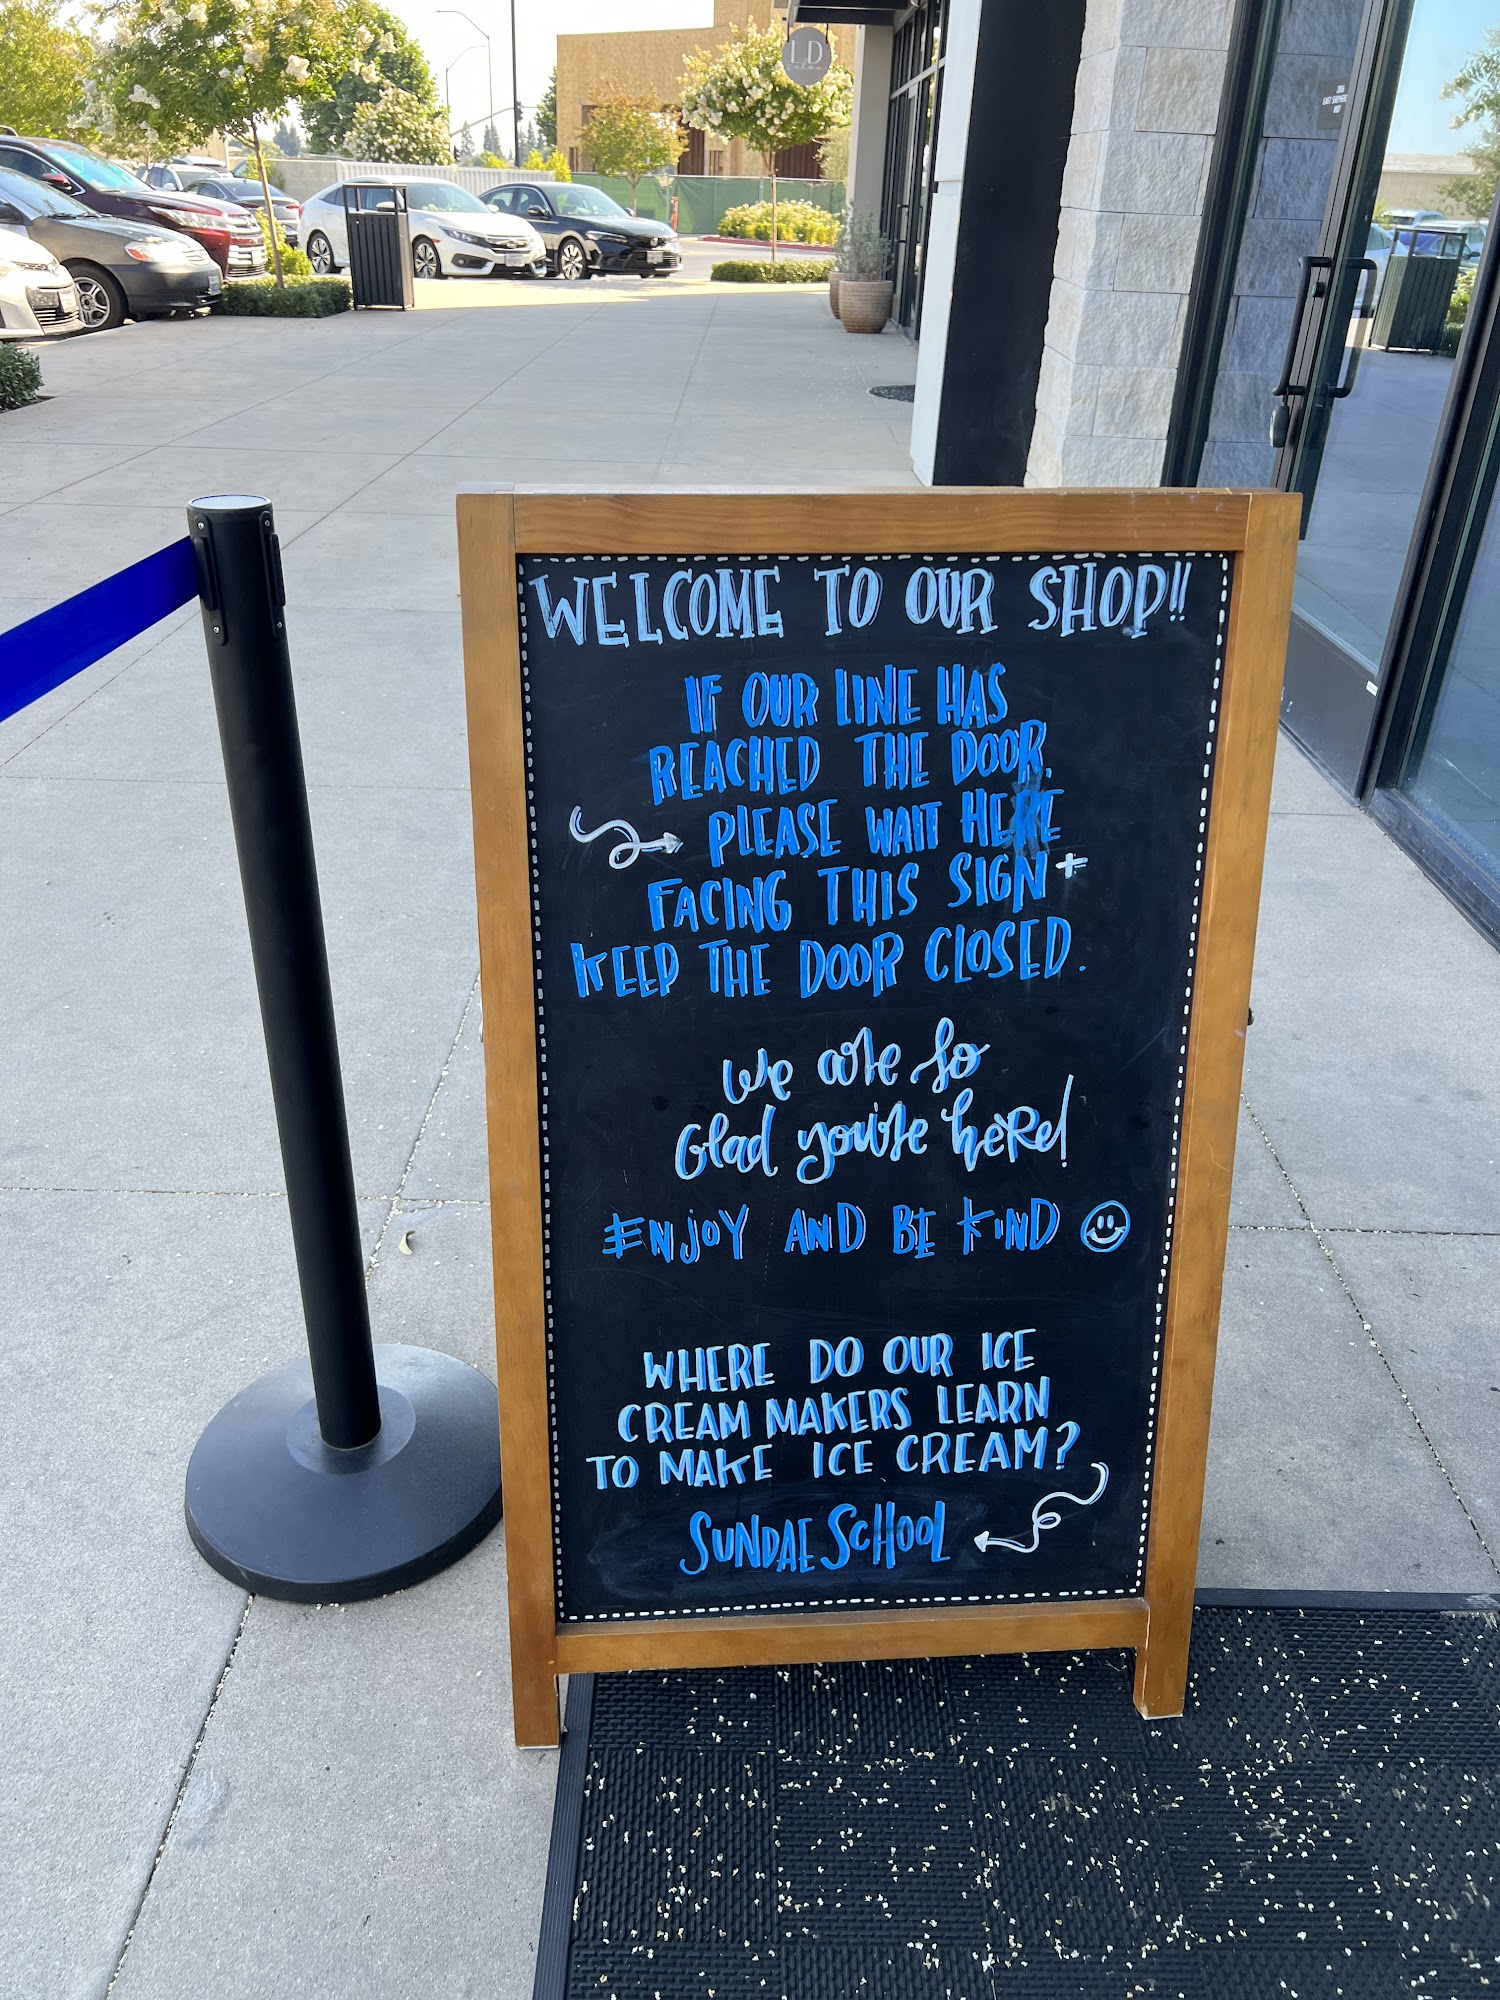 LD
salon
WELCOME TO OUR SHOP!!
IF OUR LINE HAS
REACHED THE DOOR,
PLEASE WAIT HERE
FACING THIS SIGN +
KEEP THE DOOR CLOSED.
We are so
Glad you're here!
ENJOY AND BE KIND
WHERE DO OUR ICE
CREAM MAKERS LEARN
TO MAKE ICE CREAM?
SUNDAE SCHOOL